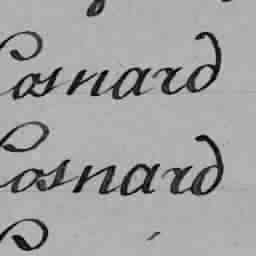 Cosnard
Cosnard